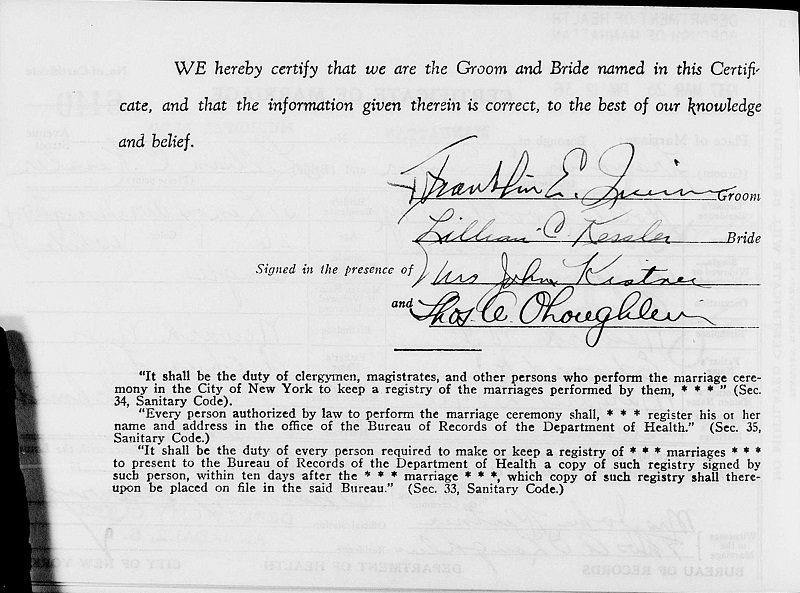 WE hereby certify that we are the Groom and Bride named in this Certifi-
cate, and that the information given therein is correct, to the best of our knowledge
and belief.
Franklin E. Groom
Lillian C. Kessler Bride
Signed in the presence of Mrs John Kistner
and Thos. A. Oloughlin
"It shall be the duty of clergymen, magistrates, and other persons who perform the marriage cere-
mony in the City of New York to keep a registry of the marriages performed by them, * * * " (Sec.
34, Sanitary Code).
"Every person authorized by law to perform the marriage ceremony shall, * * * register his or her
name and address in the office of the Bureau of Records of the Department of Health." (Sec. 35,
Sanitary Code.)
"It shall be the duty of every person required to make or keep a registry of * * * marriages * * *
to present to the Bureau of Records of the Department of Health a copy of such registry signed by
such person, within ten days after the * * * marriage * * *, which copy of such registry shall there-
upon be placed on file in the said Bureau." (Sec. 33, Sanitary Code.)